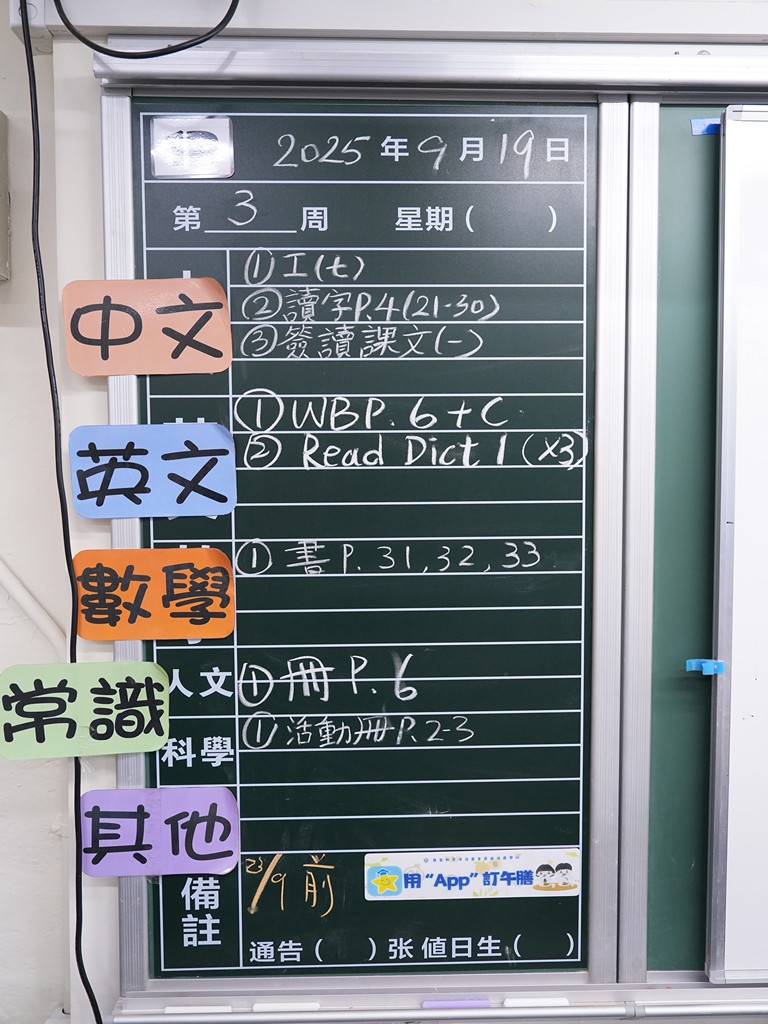 2025年9月19日
第3周 星期( )
中文
①工(七)
②讀字P.4(21-30)
③簽讀課文(一)
英文
①WBP.6+C
②Read Dict 1 (x3)
數學
①書P.31,32,33
人文
①冊P.6
常識
科學
①活動冊P.2-3
其他
備註
23/9前
用“App”訂午膳
通告( )张 值日生( )